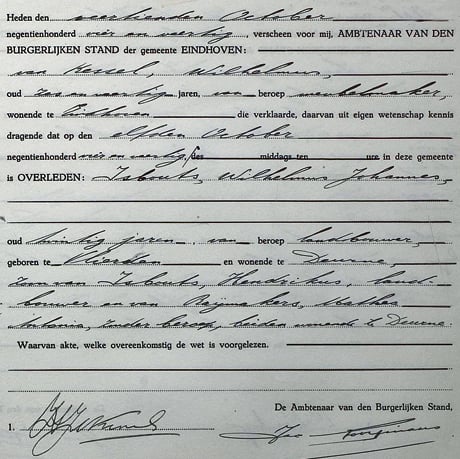 Heden den veertienden October
negentienhonderd vier en veertig, verscheen voor mij, AMBTENAAR VAN DEN
BURGERLIJKEN STAND der gemeente EINDHOVEN:
van Kessel, Wilhelmus,
oud zes en veertig jaren, van beroep meubelmaker,
wonende te Eindhoven die verklaarde, daarvan uit eigen wetenschap kennis
dragende dat op den elfden October
negentienhonderd vier en veertig, des middags ten ure in deze gemeente
is OVERLEDEN: Isbouts, Wilhelmus Johannes,
oud twintig jaren, van beroep landbouwer,
geboren te en wonende te Deurne,
zoon van Isbouts, Hendrikus, land-
bouwer en van Raijmakers,
Antonia, zonder beroep, beiden wonende te Deurne.
Waarvan akte, welke overeenkomstig de wet is voorgelezen.
De Ambtenaar van den Burgerlijken Stand,
1.